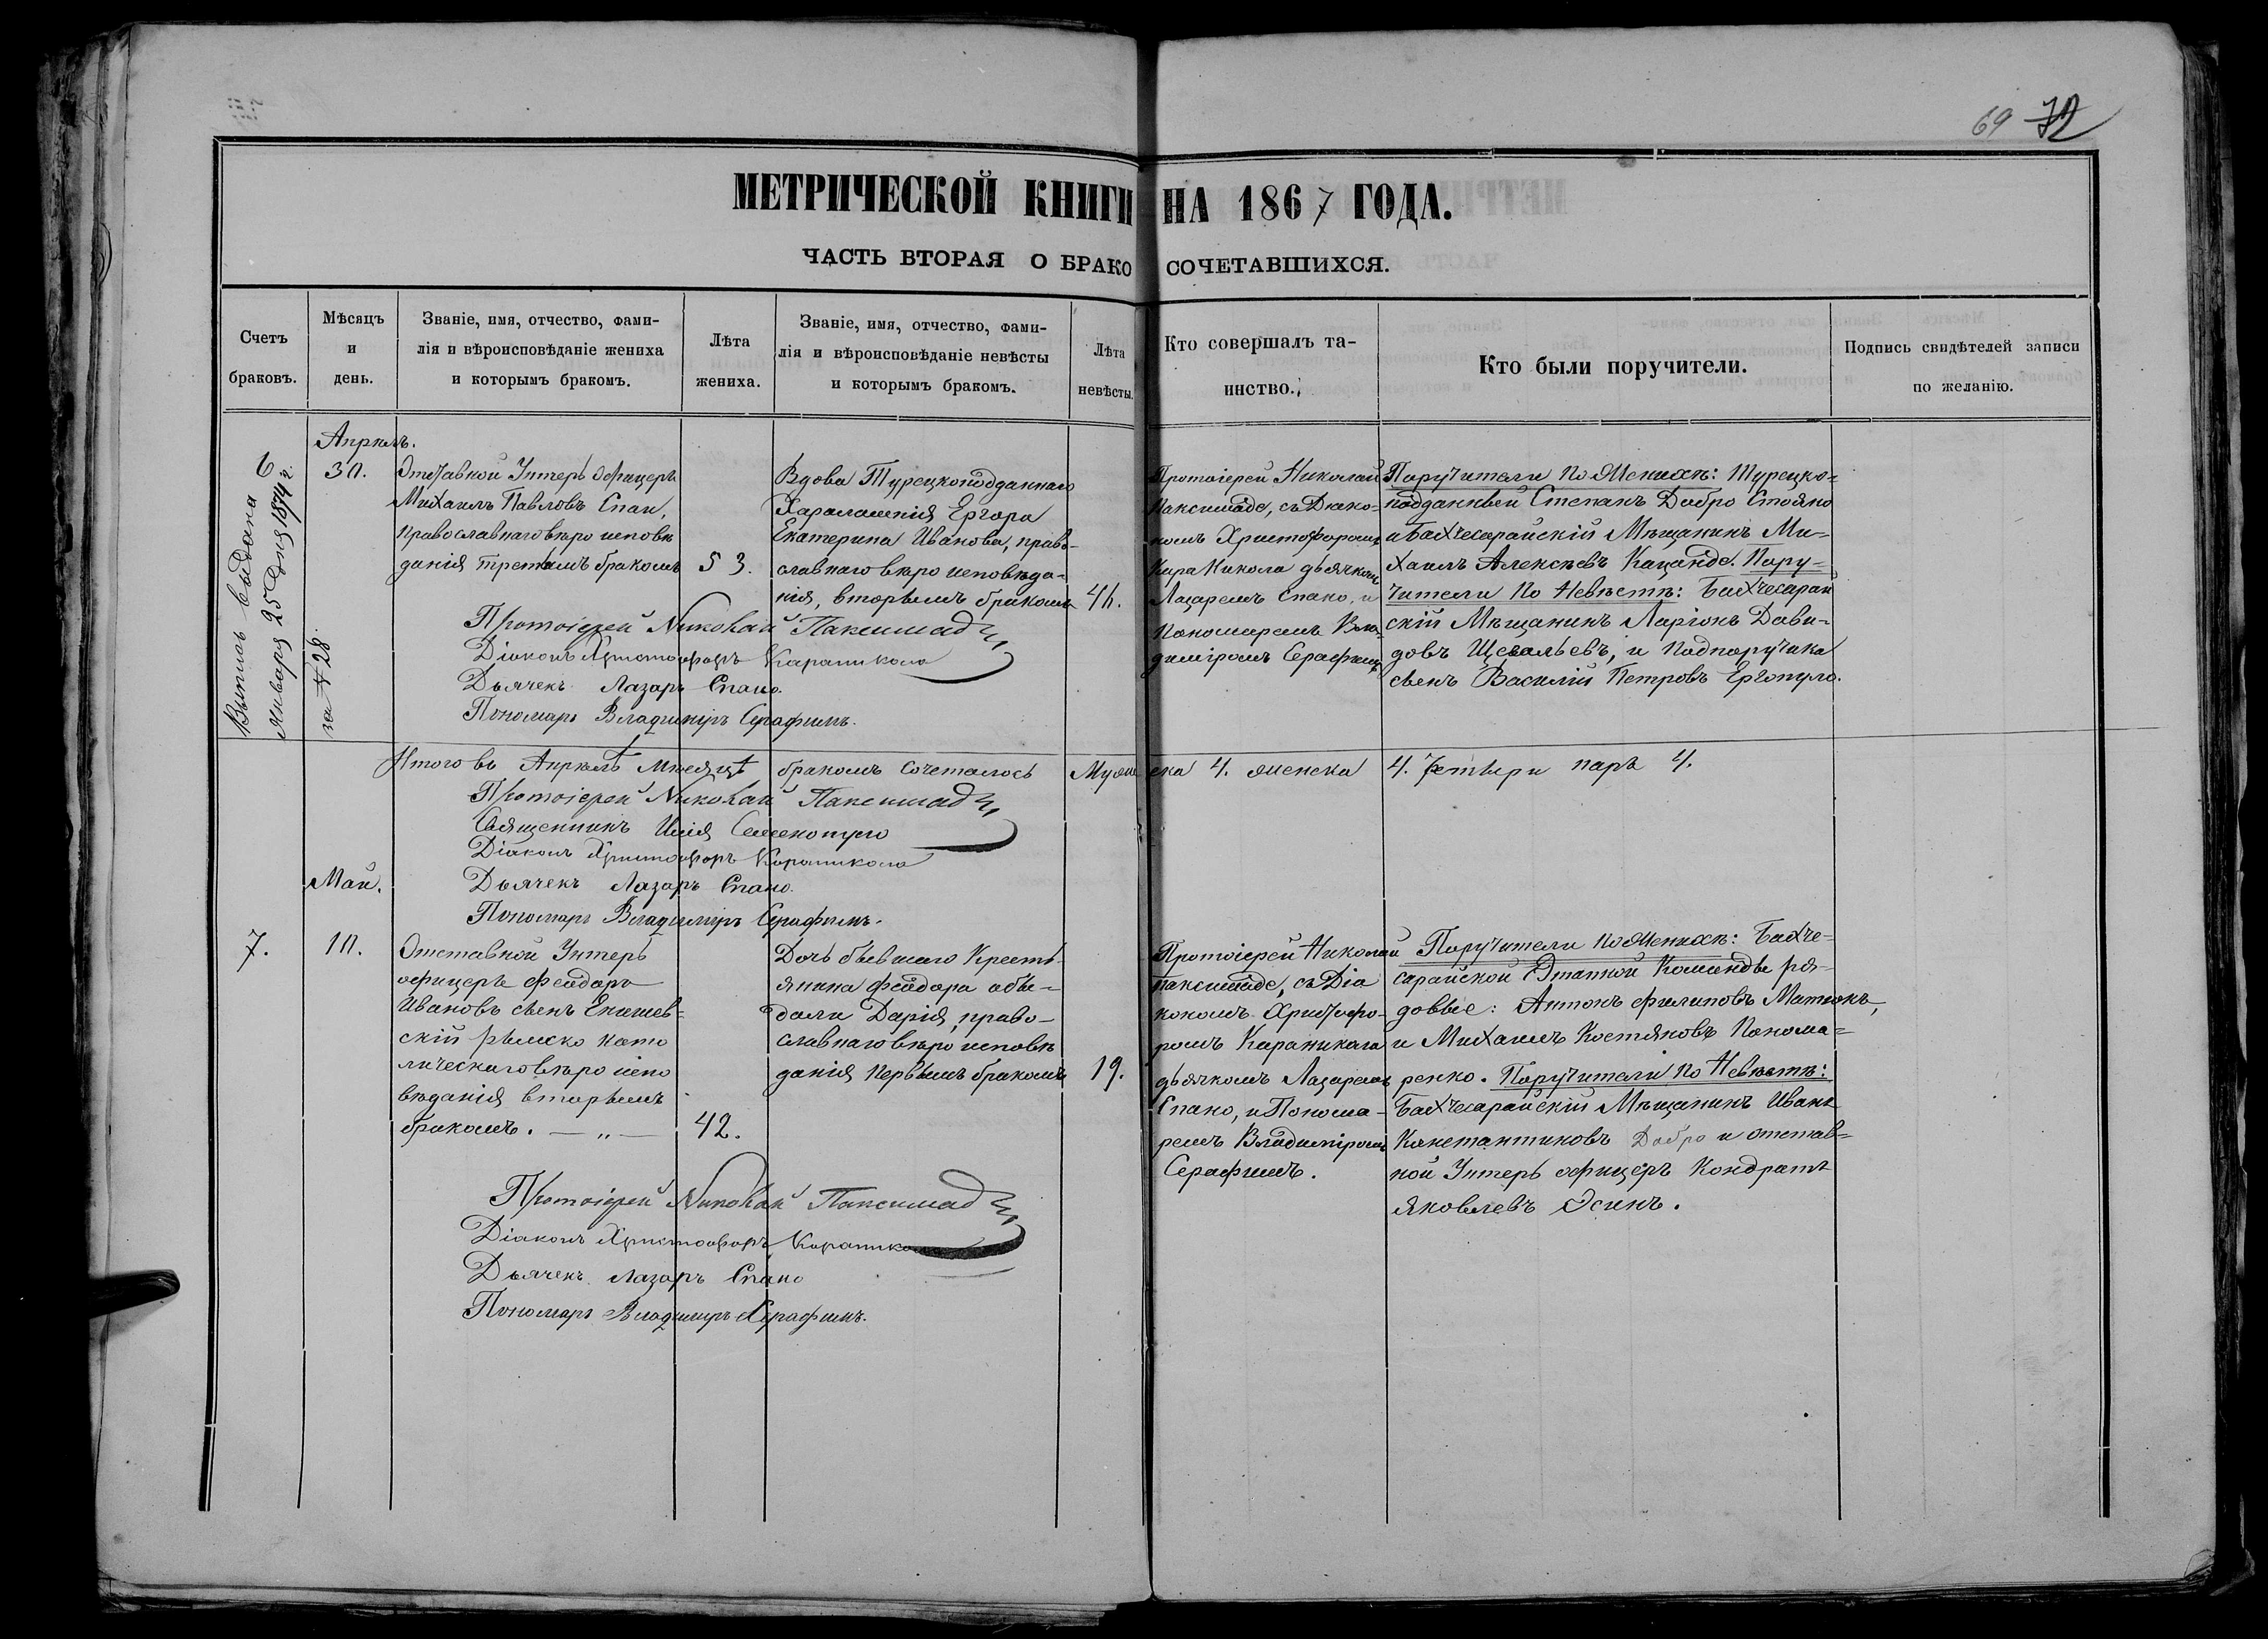 69 72
МЕТРИЧЕСКОЙ КНИГИ НА 1867 ГОДА.
ЧАСТЬ ВТОРАЯ О БРАКОСОЧЕТАВШИХСЯ.
Счетъ
браковъ.
Мѣсяцъ
и
день.
Званіе, имя, отчество, фами-
лія и вѣроисповѣданіе жениха
и которымъ бракомъ.
Лѣта
жениха.
Званіе, имя, отчество, фами-
лія и вѣроисповѣданіе невѣсты
и которымъ бракомъ.
Лѣта
невѣсты.
Кто совершалъ та-
инство.
Кто были поручители.
Подпись свидѣтелей записи
по желанію.
6
Выпись выдана
Января 25 дня 1874 г.
за № 28.
Апрѣль.
30.
Отставной Унтеръ офицеръ
Михаилъ Павловъ Спаи,
православнаго вѣро исповѣ
данія третьимъ бракомъ
53.
Вдова Турецкоподданнаго
Харалампія Ергора
Екатерина Иванова, право-
славнаго вѣро исповѣда-
нія, вторымъ бракомъ
46.
Протоіерей Николай
Паксимаде, съ Діако-
номъ Христофоромъ
Кара Никола дьячкомъ
Лазаремъ Спано, и
Пономаремъ Вла-
диміромъ Серафимъ
Поручители по Женихѣ: Турецко-
подданный Степанъ Добро Стояно
и Бахчесарайскій Мѣщанинъ Ми-
хаилъ Алексѣевъ Каканде. Пору-
чители по Невѣстѣ: Бахчесарай
скій Мѣщанинъ Ларіонъ Дави-
довъ Щегольевъ, и Подпоручика
сынъ Василій Петровъ Ергопуло.
Протоіерей Николай Паксимад
Діаконъ Христофоръ Караникола
Дьячекъ Лазарь Спано.
Пономарь Владиміръ Серафимъ.
Итого въ Апрѣлѣ мѣсяцѣ бракомъ сочеталось Мужеска 4. женска 4. Четыри паръ 4.
Протоіерей Николай Паксимад
Священникъ Илія Семенопуло
Діаконъ Христофоръ Караникола
Дьячекъ Лазарь Спано.
Пономарь Владиміръ Серафимъ.
Май.
7.
10.
Отставной Унтеръ
офицеръ Феодоръ
Ивановъ сынъ Енишев-
скій рымско като
лическаго вѣро испо
вѣданія вторымъ
бракомъ. — „ —
42.
Дочь бывшаго Кресть
янина Феодора обы-
дали Дарія, право-
славнаго вѣро исповѣ
данія первымъ бракомъ
19.
Протоіерей Николай
паксимаде, съ Діа
кономъ Христофо-
ромъ Караникола
дьячкомъ Лазаремъ
Спано, и Понома-
ремъ Владиміромъ
Серафимъ.
Поручители по Женихѣ: Бахче-
сарайской Этапной Команды ря-
довые: Антонъ Филиповъ Матюкъ,
и Михаилъ Костяновъ Понома-
ренко. Поручители по Невѣстѣ:
Бахчесарайскій Мѣщанинъ Иванъ
Константиновъ Добро и отстав-
ной Унтеръ офицеръ Кондратъ
Яковлевъ Эсинъ.
Протоіерей Николай Паксимад
Діаконъ Христофоръ Караникола
Дьячекъ Лазарь Спано
Пономарь Владиміръ Серафимъ.